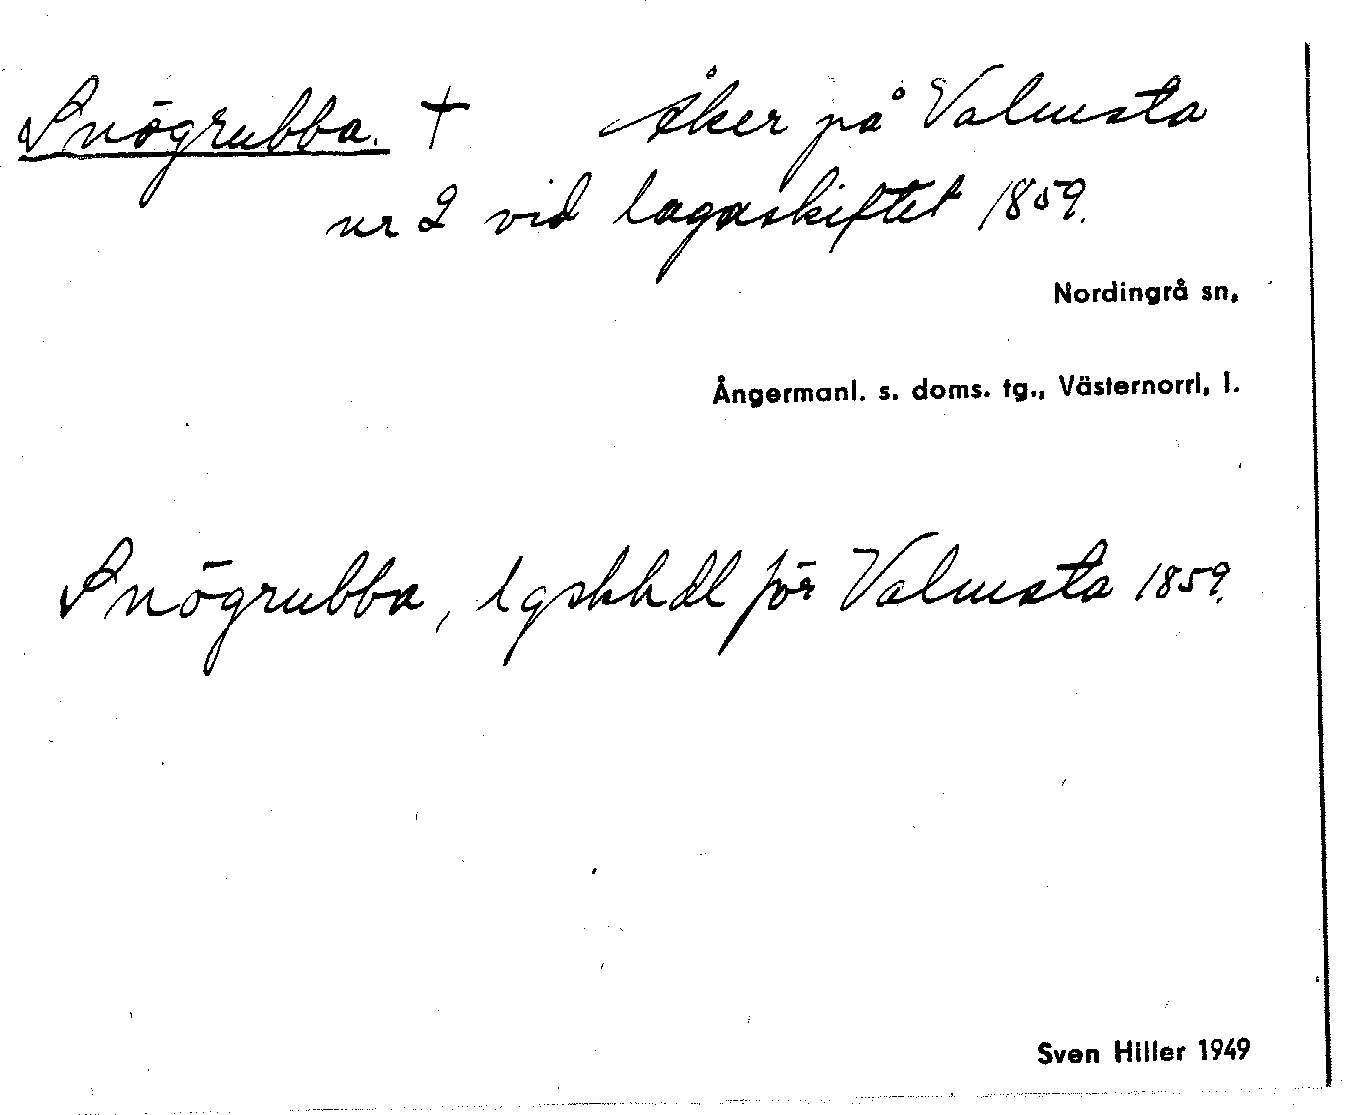 Snögrubba. † Åker på Valmsta
nr 2 vid lagaskiftet 1859.
Nordingrå sn,
Ångermanl. s. doms. tg., Västernorrl, l.
Snögrubba, lgskhdl för Valmsta 1859.
Sven Hiller 1949